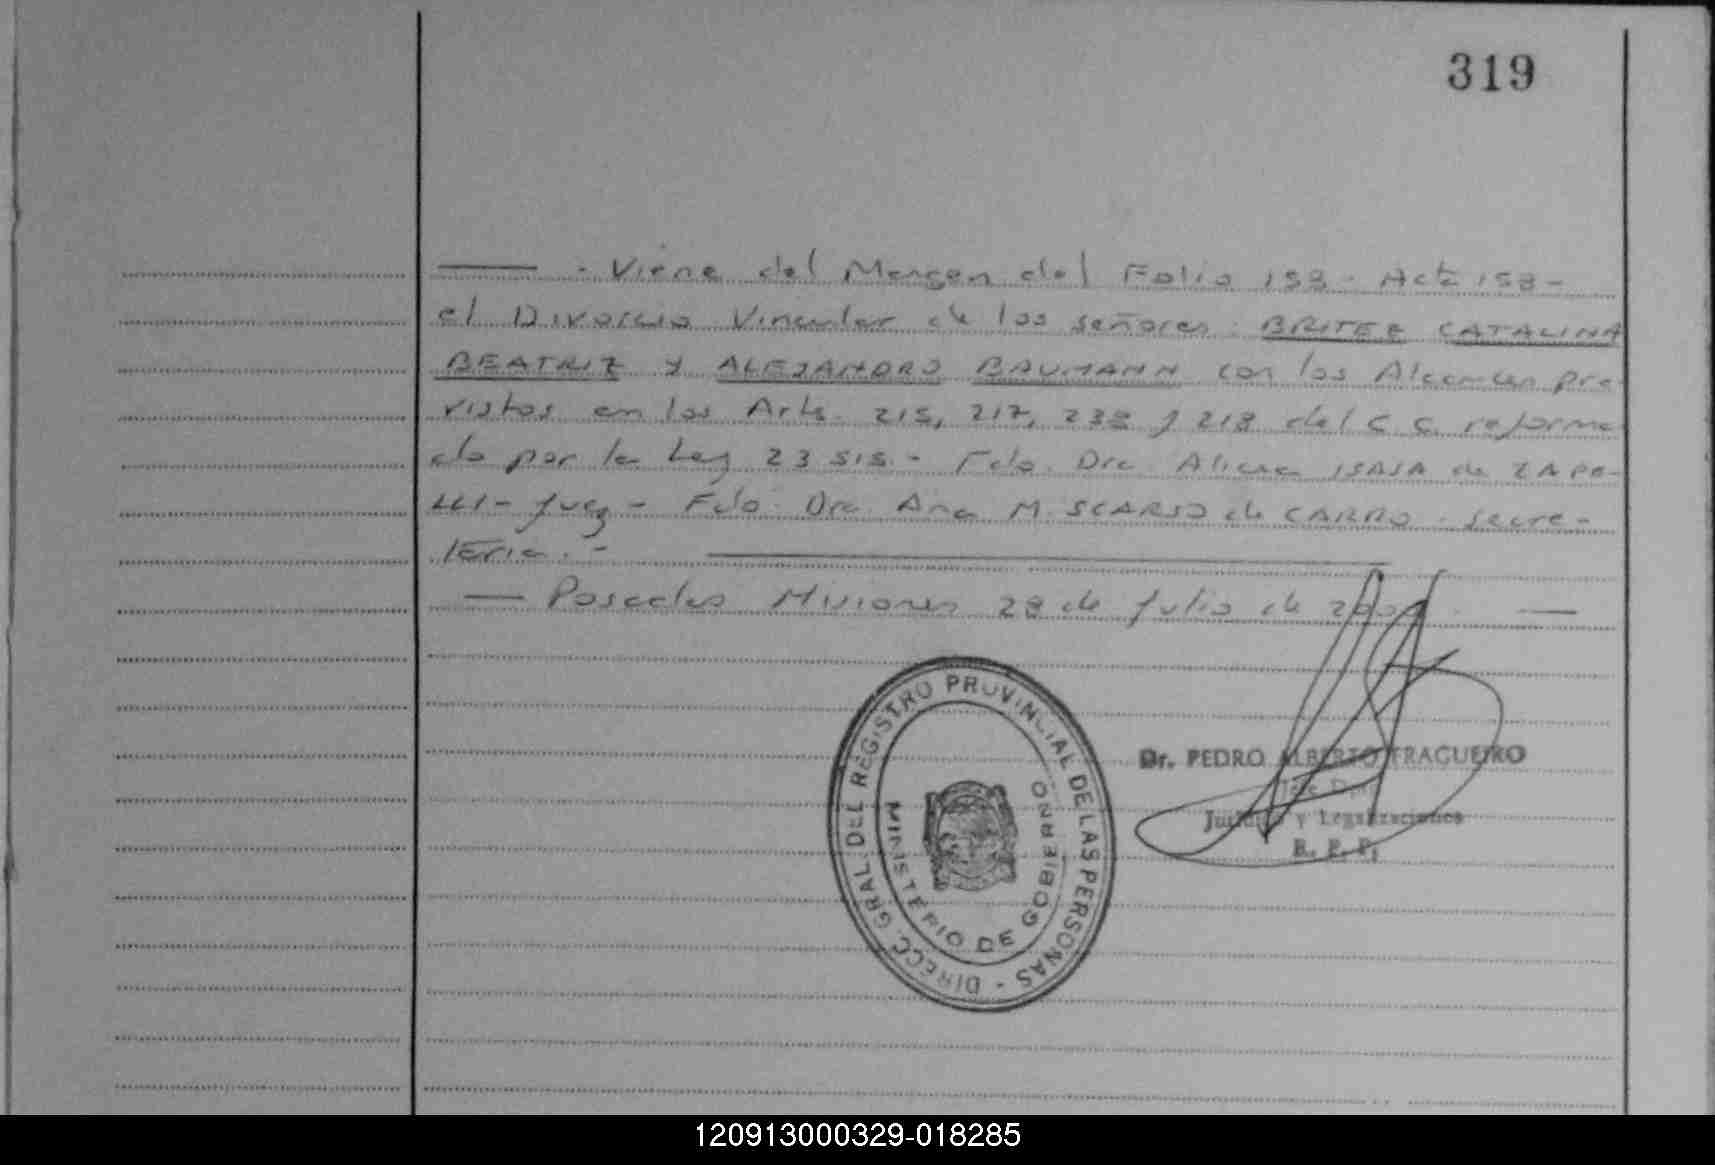 319
— - Viene del Margen del Folio 153 - Acta 153 -
el Divorcio Vincular de los señores: BRITEZ CATALINA
BEATRIZ y ALEJANDRO BAUMANN con los Alcances pre-
vistos en los Arts. 215, 217, 238 y 218 del C C. reforma-
do por la Ley 23 515. - Fdo. Dra. Alicia ISASA de
Juez - Fdo. Dra. Ana M. SCARSO de CARRO - Secre-
taria. -
— Posadas Misiones 28 de Julio de —
DIRECC. GRAL. DEL REGISTRO PROVINCIAL DE LAS PERSONAS -
MINISTERIO DE GOBIERNO
Dr. PEDRO ALBERTO FRAGUEIRO
Jefe Dpto.
Jurídico y Legalizaciones
R. P. P.
120913000329-018285